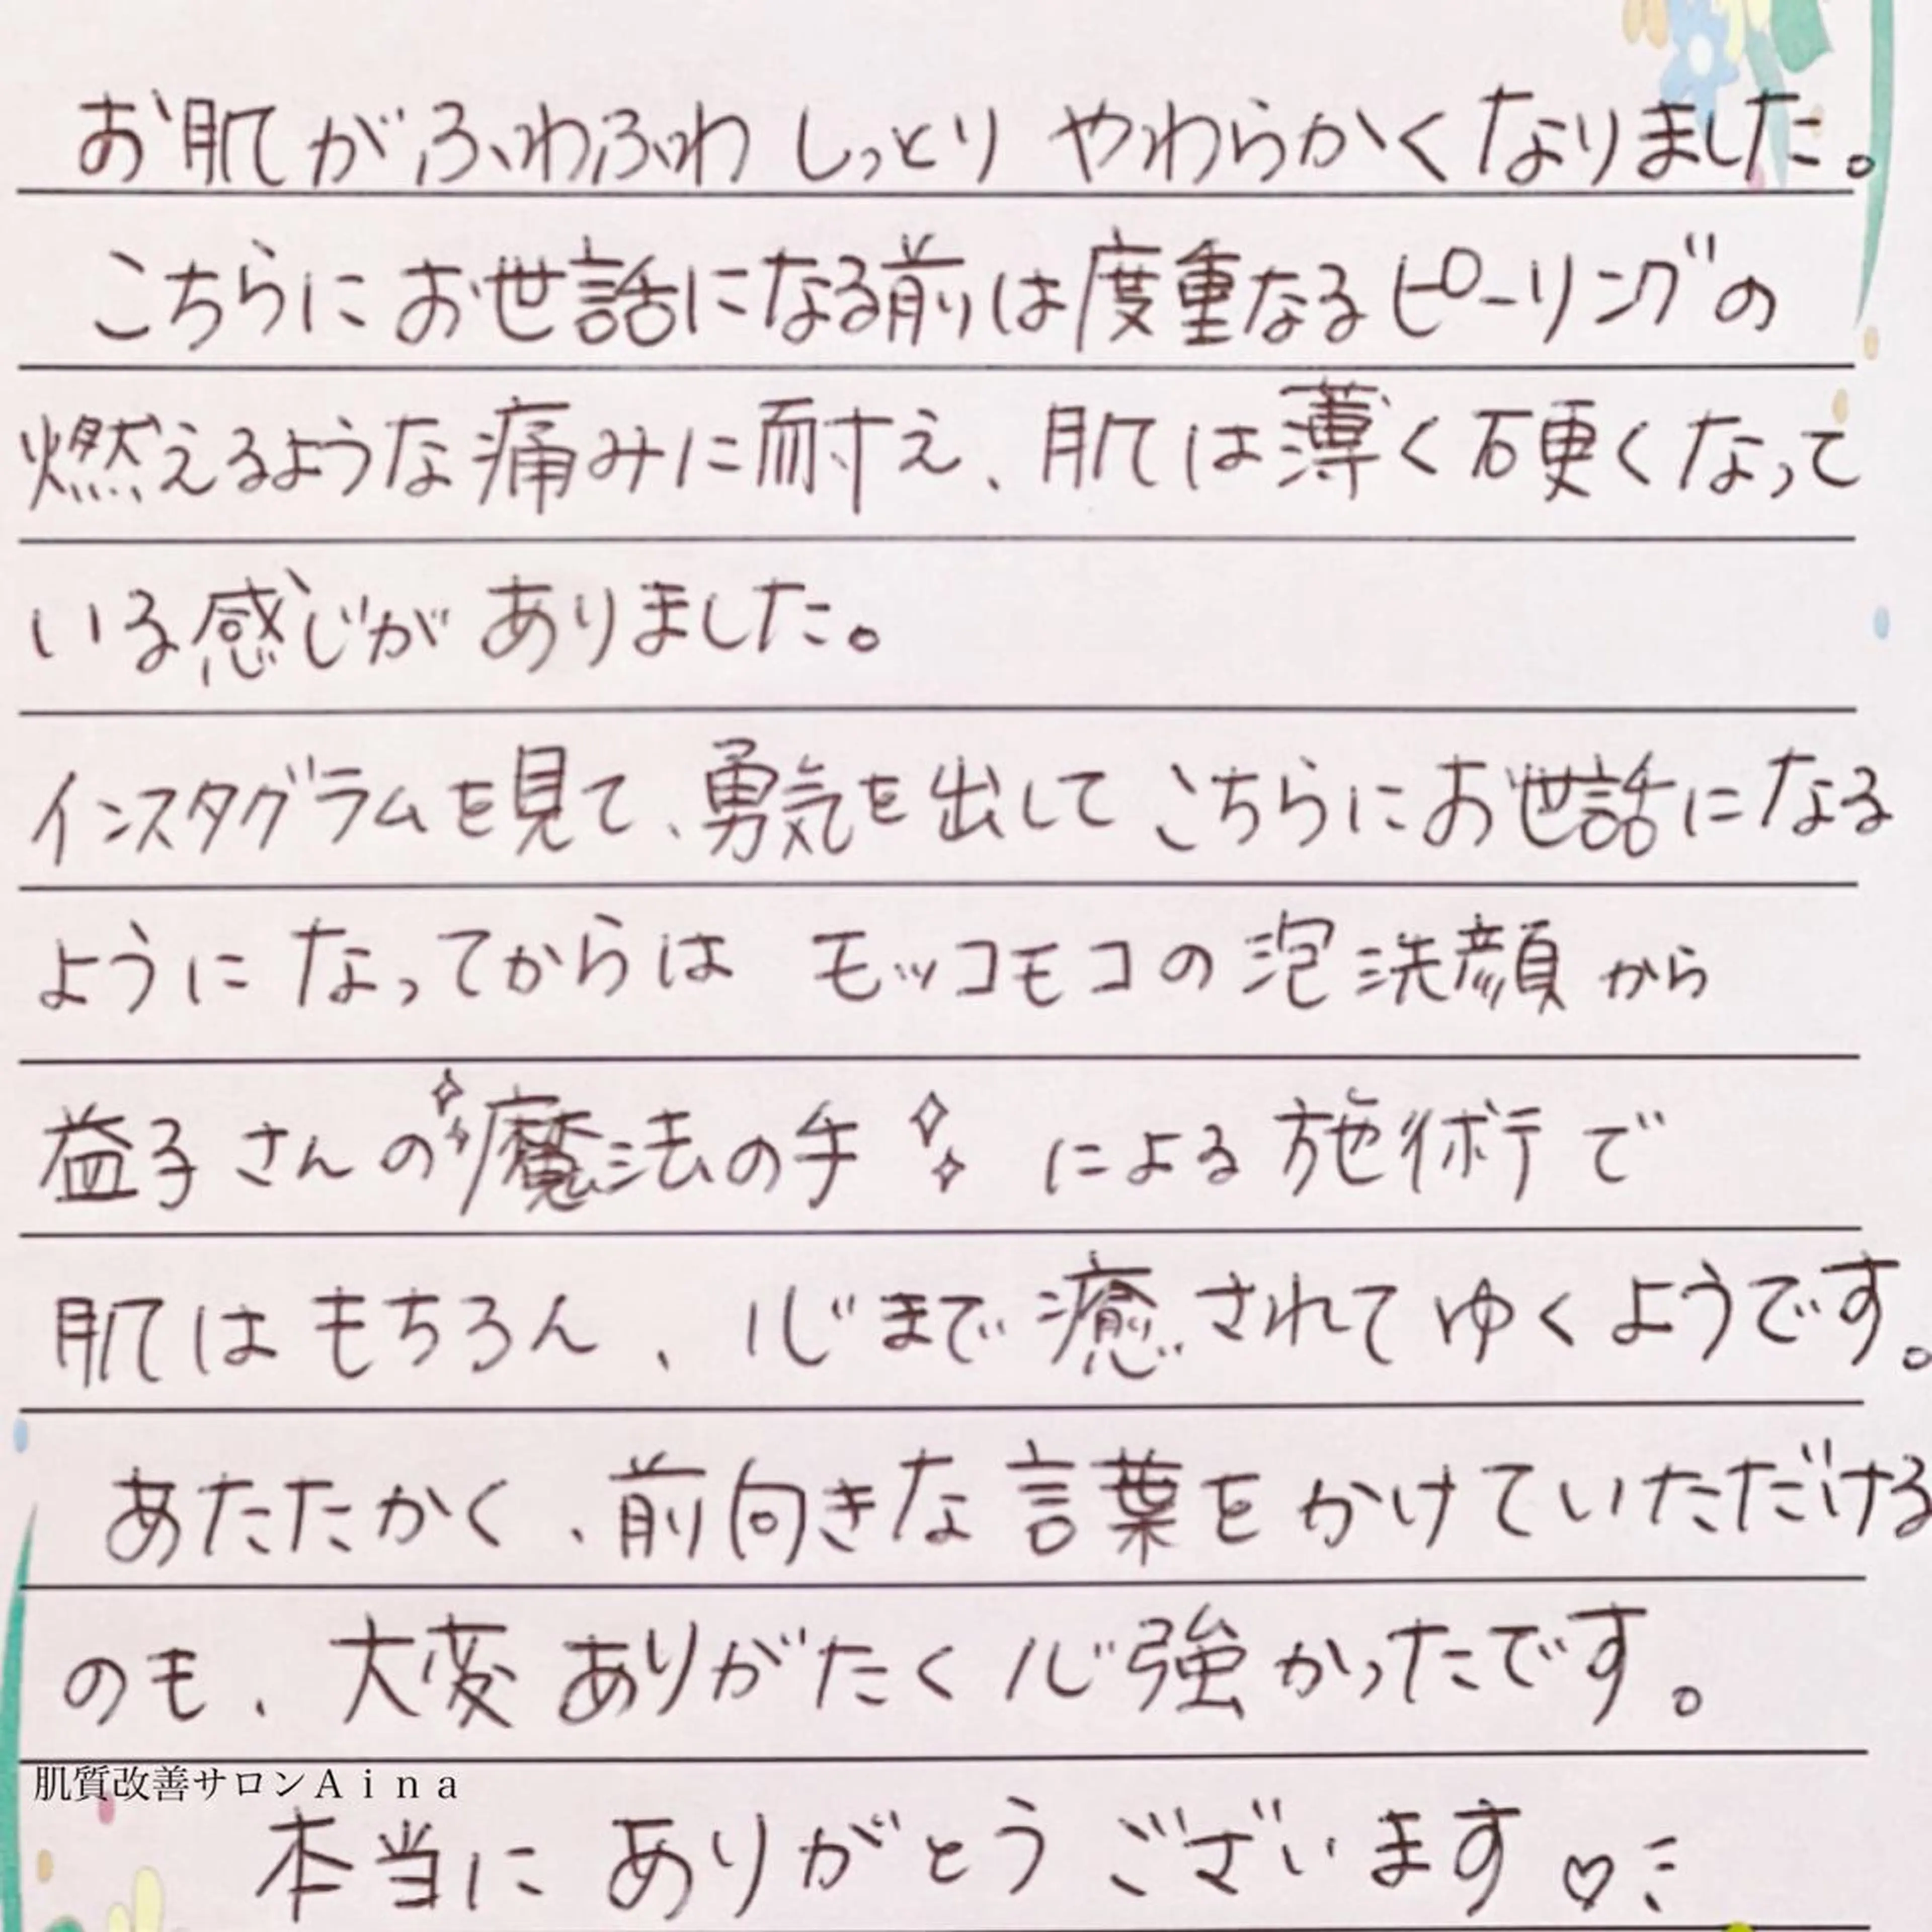 お肌がふわふわ しっとり やわらかくなりました。
こちらにお世話になる前は度重なるピーリングの
燃えるような痛みに耐え、肌は薄く硬くなって
いる感じがありました。
インスタグラムを見て、勇気を出してこちらにお世話になる
ようになってからは モッコモコの泡洗顔から
益子さんの魔法の手 による施術で
肌はもちろん、心まで癒されてゆくようです。
あたたかく、前向きな言葉をかけていただける
のも、大変ありがたく心強かったです。
肌質改善サロンAina
本当に ありがとう ございます♡